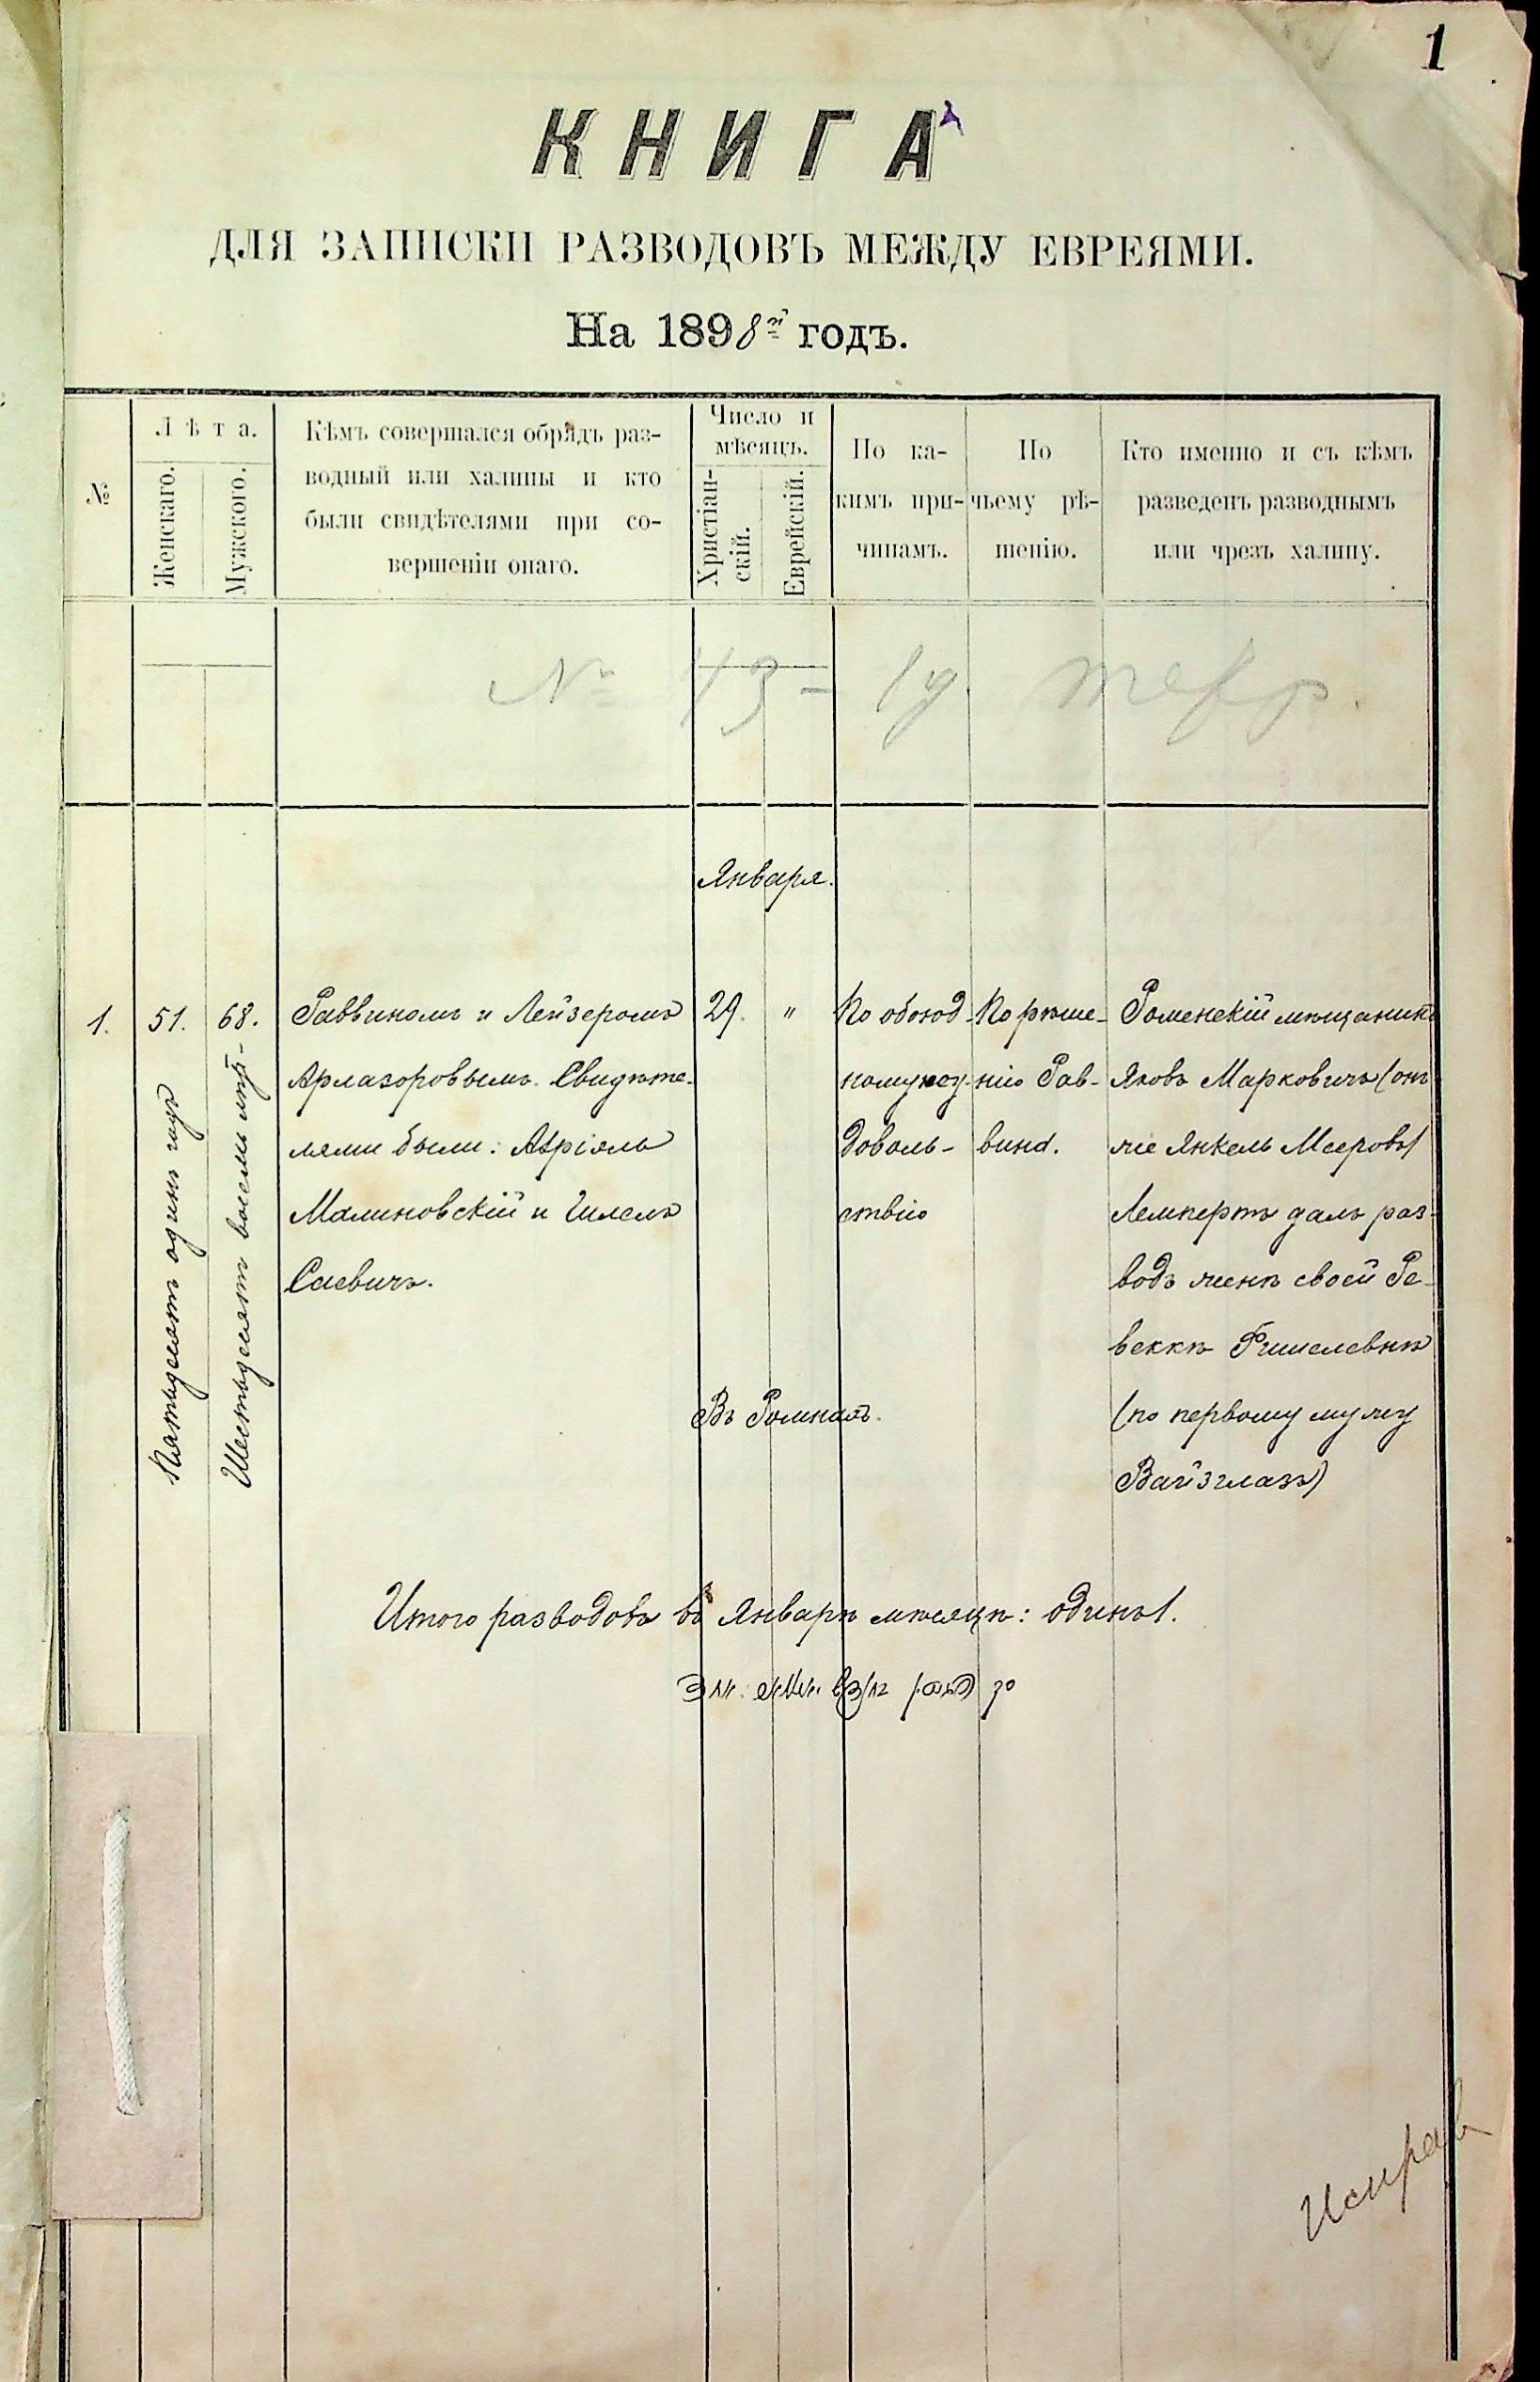 1
КНИГА
ДЛЯ ЗАПИСКИ РАЗВОДОВЪ МЕЖДУ ЕВРЕЯМИ.
На 1898й годъ.
№
Лѣта.
Женскаго.
Мужского.
Кѣмъ совершался обрядъ раз-
водный или халицы и кто
были свидѣтелями при со-
вершеніи онаго.
Число и
мѣсяцъ.
Христіан-
скій.
Еврейскій.
По ка-
кимъ при-
чинамъ.
По
чьему рѣ-
шенію.
Кто именно и съ кѣмъ
разведенъ разводнымъ
или чрезъ халицу.
Января.
1.
51.
Пятьдесятъ одинъ годъ
68.
Шестьдесятъ восемь лѣтъ
Раввиномъ и Лейзеромъ
Арлазоровымъ. Свидѣте-
лями были:
Малиновскій и
Саевичъ.
29.
"
По обоюд-
ному неу-
доволь-
ствію
По рѣше-
нію Рав-
вина.
Роменскій мѣщанинъ
Яковъ Марковичъ (онъ
же Янкель Мееровъ)
Лемпертъ далъ раз-
водъ женѣ своей Ре-
веккѣ Фишелевнѣ
(по первому мужу
Вайзглазъ)
Въ Ромнахъ.
Итого разводовъ въ Январѣ мѣсяцѣ: одинъ 1.